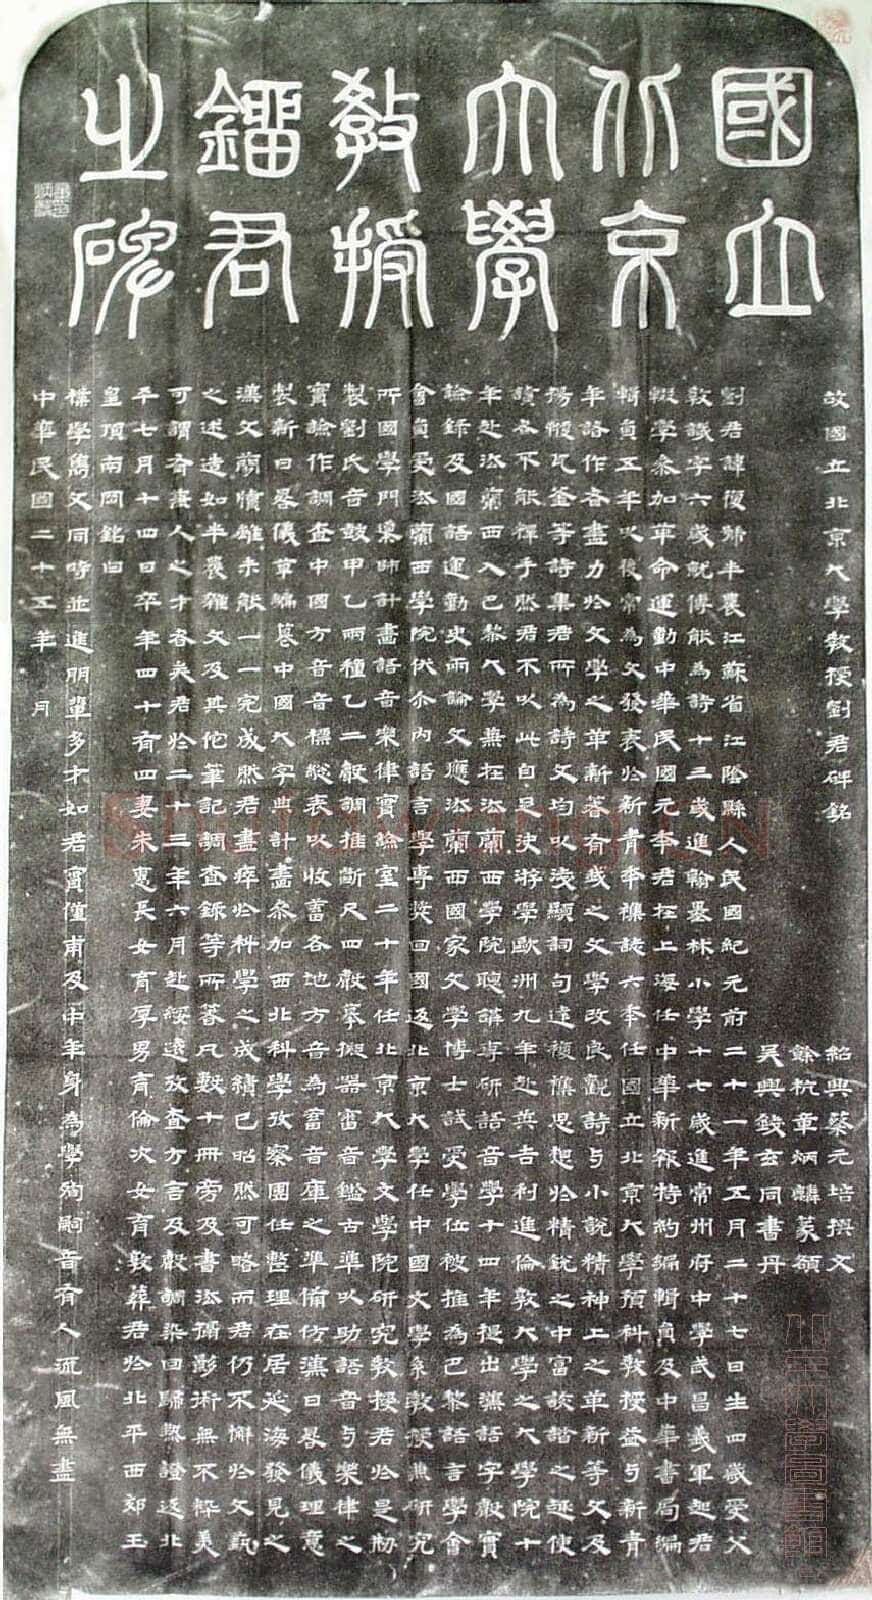 國立
北京
大學
教授
鎦君
之碑
故國立北京大學教授劉君碑銘
紹興蔡元培撰文
餘杭章炳麟篆額
吳興錢玄同書丹
劉君諱復號半農江蘇省江陰縣人民國紀元前二十一年五月二十七日生四歲受父
教識字六歲就傅能為詩十三歲進翰墨林小學十七歲進常州府中學武昌義軍起君
輟學參加革命運動中華民國元年君在上海任中華新報特約編輯員及中華書局編
輯員五年以後常為文發表於新青年襍誌六年任國立北京大學預科教授益與新青
年諸作者盡力於文學之革新著有我之文學改良觀詩與小說精神上之革新等文及
揚鞭瓦釜等詩集君所為詩文均以淺顯詞句達複襍思想於精銳之中富詼諧之趣使
讀者不能釋手然君不以此自足決游學歐洲九年赴英吉利進倫敦大學之大學院十
年赴法蘭西入巴黎大學兼在法蘭西學院聽講專研語音學十四年提出漢語字聲實
論錄及國語運動史兩論文應法蘭西國家文學博士試受學位被推為巴黎語言學會
會員受法蘭西學院伏尒內語言學專獎回國返北京大學任中國文學系教授兼研究
所國學門導師計畫語音樂律實論室二十年任北京大學文學院研究教授君於是刱
製劉氏音鼓甲乙兩種乙二聲調推斷尺四聲摹擬器審音鑑古準以助語音與樂律之
實論作調查中國方音音標總表以收蓄各地方音為蓄音庫之準備仿漢日晷儀理意
製新日晷儀草編纂中國大字典計畫參加西北科學攷察團任整理在居延海發見之
漢文簡牘雖未能一一完成然君盡瘁於科學之成績已昭然可略而君仍不懈於文蓺
之述造如半農雜文及其佗筆記調查錄等所著凡數十冊旁及書法攝影術無不粹美
可謂有兼人之才者矣君於二十三年六月赴綏遠攷查方言及聲調染回歸熱證返北
平七月十四日卒年四十有四妻朱惠長女育厚男育倫次女育敦葬君於北平西郊玉
皇頂南岡銘曰
樸學雋文同時並進朋輩多才如君實僅甫及中年身為學殉嗣音有人流風無盡
中華民國二十五年 月